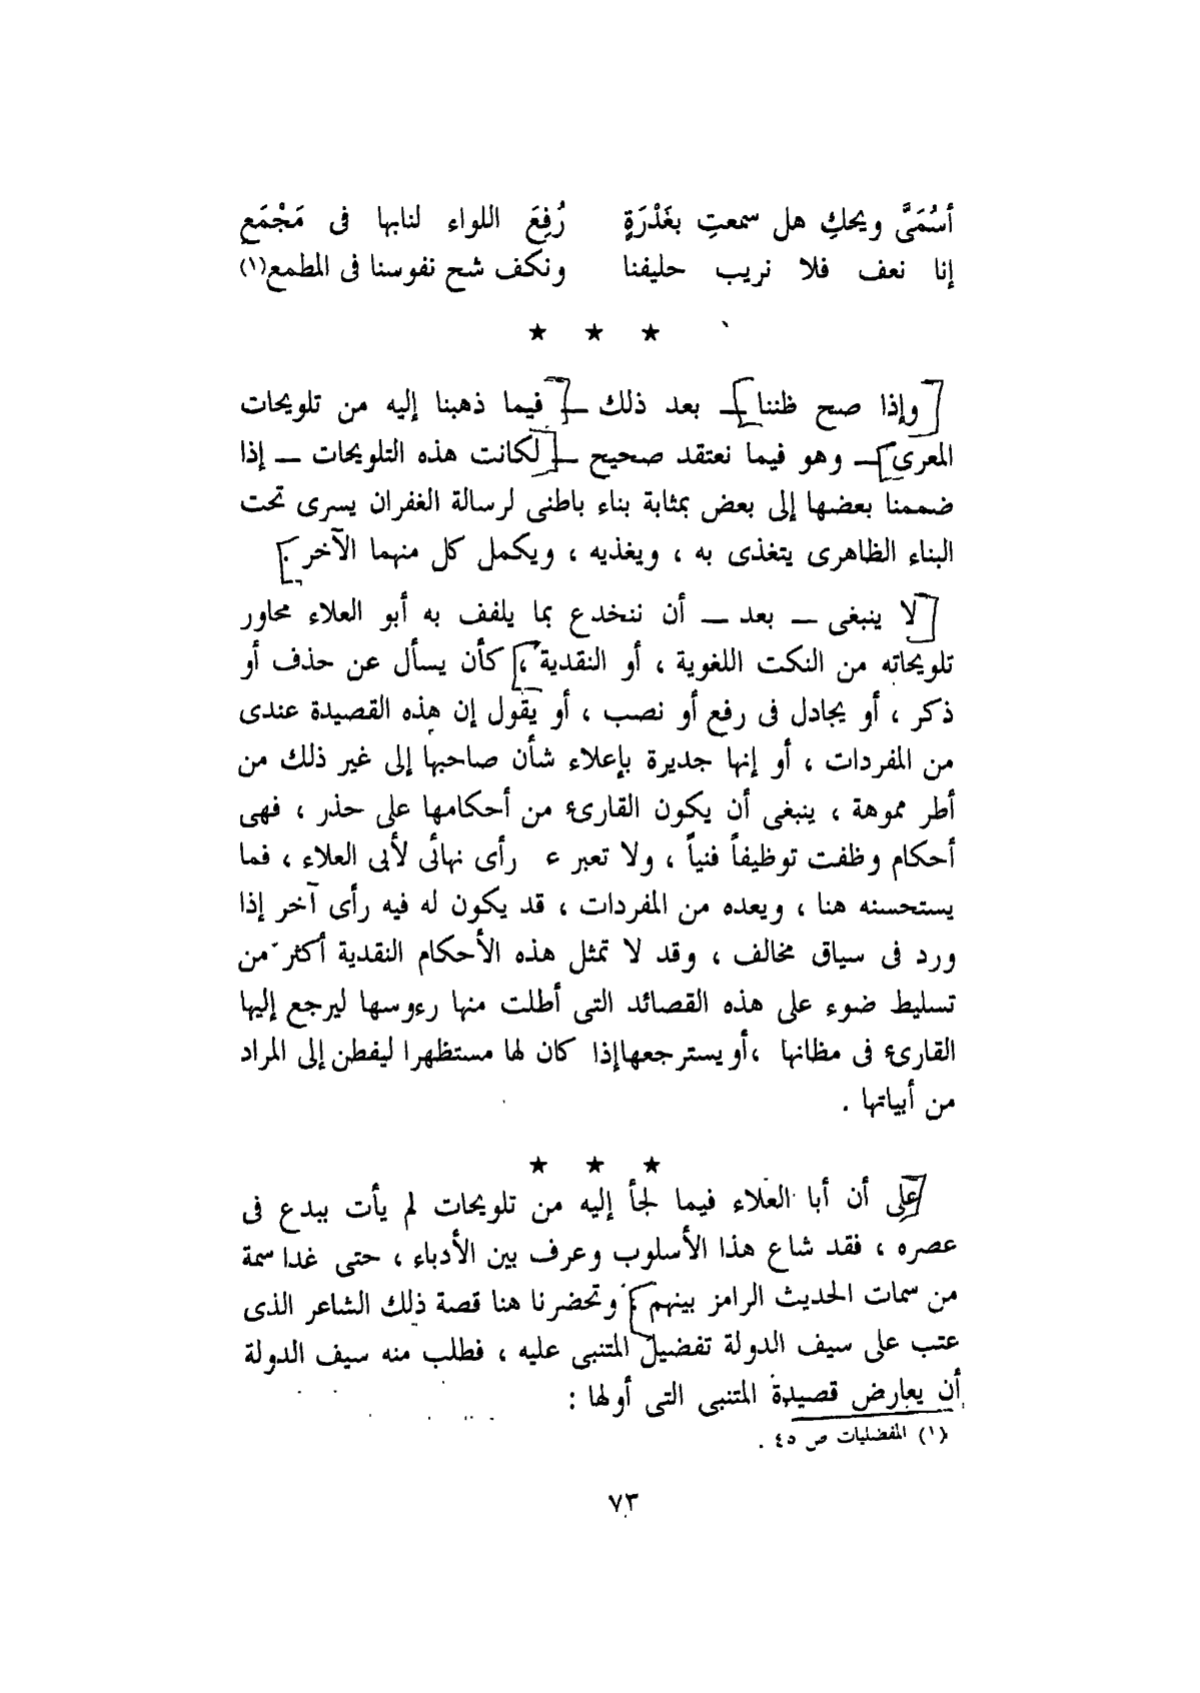 أسُمَىَّ ويحكِ هل سمعتِ بغَدْرَةٍ رُفِعَ اللواء لنابها فى مَجْمَعِ
إنا نعف فلا نريب حليفنا ونكف شح نفوسنا فى المطمع(١)
★ ★ ★
[وإذا صح ظننا] ــ بعد ذلك ــ [فيما ذهبنا إليه من تلويحات
المعرى] ــ وهو فيما نعتقد صحيح ــ [لكانت هذه التلويحات ــ إذا
ضممنا بعضها إلى بعض بمثابة بناء باطنى لرسالة الغفران يسرى تحت
البناء الظاهرى يتغذى به ، ويغذيه ، ويكمل كل منهما الآخر .]
[لا ينبغى ــ بعد ــ أن ننخدع بما يلفف به أبو العلاء محاور
تلويحاته من النكت اللغوية ، أو النقدية ،] كأن يسأل عن حذف أو
ذكر ، أو يجادل فى رفع أو نصب ، أو يقول إن هذه القصيدة عندى
من المفردات ، أو إنها جديرة بإعلاء شأن صاحبها إلى غير ذلك من
أطر مموهة ، ينبغى أن يكون القارىء من أحكامها على حذر ، فهى
أحكام وظفت توظيفاً فنياً ، ولا تعبر ع رأى نهائى لأبى العلاء ، فما
يستحسنه هنا ، ويعده من المفردات ، قد يكون له فيه رأى آخر إذا
ورد فى سياق مخالف ، وقد لا تمثل هذه الأحكام النقدية أكثر من
تسليط ضوء على هذه القصائد التى أطلت منها رءوسها ليرجع إليها
القارىء فى مظانها ،أو يسترجعها إذا كان لها مستظهرا ليفطن إلى المراد
من أبياتها .
★ ★ ★
[على أن أبا العلاء فيما لجأ إليه من تلويحات لم يأت ببدع فى
عصره ، فقد شاع هذا الأسلوب وعرف بين الأدباء ، حتى غدا سمة
من سمات الحديث الرامز بينهم .] وتحضرنا هنا قصة ذلك الشاعر الذى
عتب على سيف الدولة تفضيل المتنبى عليه ، فطلب منه سيف الدولة
أن يعارض قصيدة المتنبى التى أولها :
(١) المفضليات ص ٤٥ .
٧٣